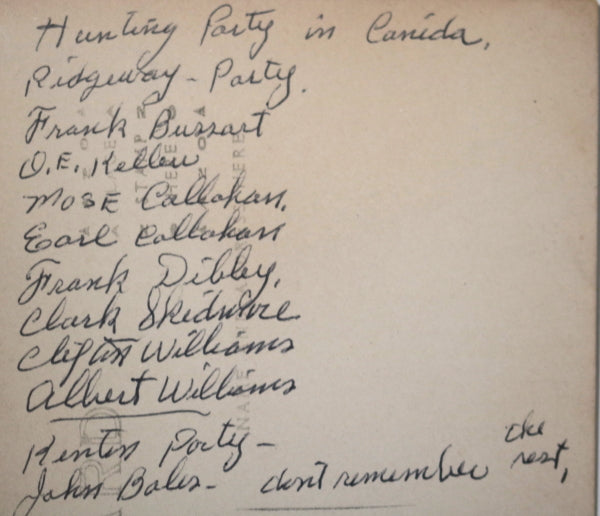 Hunting Party in Canida,
Ridgeway - Party.
Frank Bussart
O.E. Kellew
MOSE Callohan.
Earl Callohan
Frank Dibley,
Clark Skidmore
Clifton Williams
Albert Williams
Kenton Party -
John Bales - dont remember the rest,
STAMP
HERE